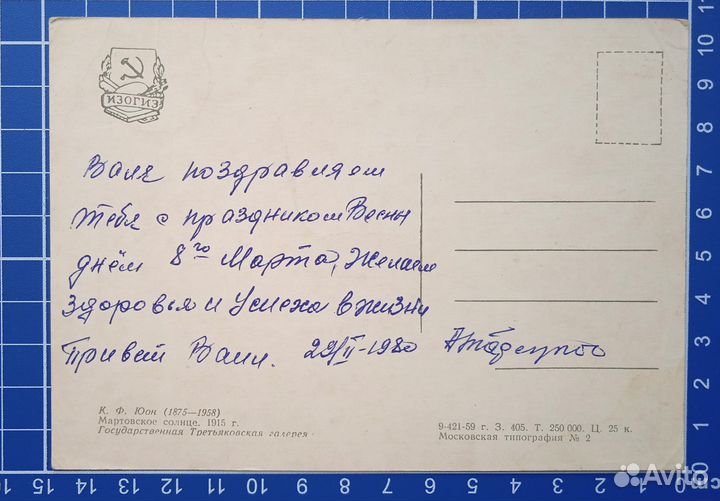 ИЗОГИЗ
Валя поздравляем
тебя с праздником Весны
днём 8го Марта, Желаем
здоровья и Успеха в жизни
Привет Вали. 29/II-1980
К. Ф. Юон (1875—1958)
Мартовское солнце. 1915 г.
Государственная Третьяковская галерея
9-421-59 г. З. 405. Т. 250 000. Ц. 25 к.
Московская типография № 2
15 14 13 12 11 10 9 8 7 6 5 4 3 2 1 0 cm
11
10
9
8
7
6
5
4
3
2
1
0
Avito